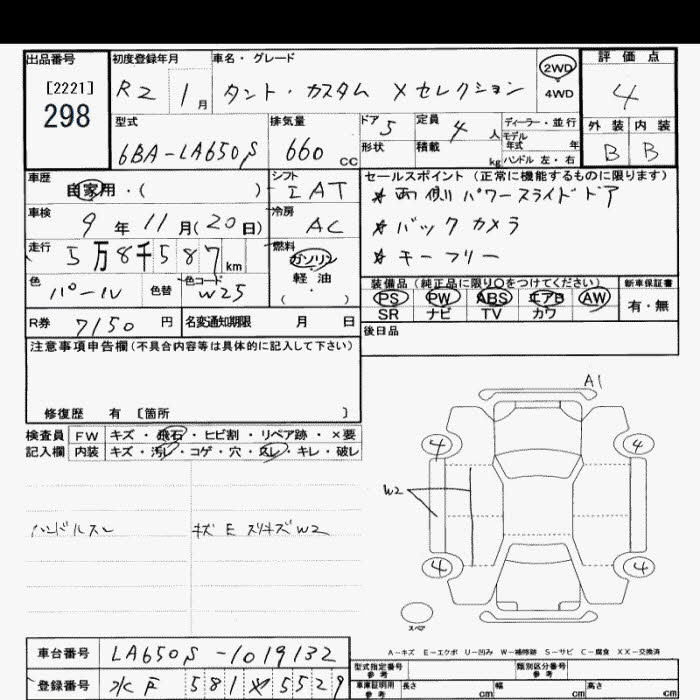 出品番号 [2221] 298
初度登録年月 R2 1月
車名・グレード タント・カスタム Xセレクション
2WD 4WD
評価点 4
型式 6BA-LA650S
排気量 660 cc
ドア 5 形状
定員 4人 積載 kg
ディーラー・並行
モデル年式 年
ハンドル 左・右
外装 内装
B B
車歴 自家用・( )
シフト IAT
セールスポイント(正常に機能するものに限ります)
*両側パワースライドドア
*バックカメラ
*キーフリー
車検 9年11月(20日)
冷房 AC
走行 5万8千587km
燃料 ガソリン 軽油 ( )
色 パール 色替 色コード W25
装備品(純正品に限り○をつけてください)
PS PW ABS エアB AW
SR ナビ TV カワ
新車保証書 有・無
R券 7150円 名変通知期限 月 日
後日品
注意事項申告欄(不具合内容等は具体的に記入して下さい)
修復歴 有 [箇所 ]
検査員記入欄
FW キズ・飛石・ヒビ割・リペア跡・×要
内装 キズ・汚レ・コゲ・穴・スレ・キレ・破レ
ハンドルスレ
キズ E スリキズW2
A1
4 4
W2
4 4
スペア
A-キズ E-エクボ U-凹み W-補修跡 S-サビ C-腐食 XX-交換済
車台番号 LA650S-1019132
型式指定番号 参考 類別区分番号 参考
登録番号 581 5529
車庫証明用 参考 長さ cm 幅 cm 高さ cm